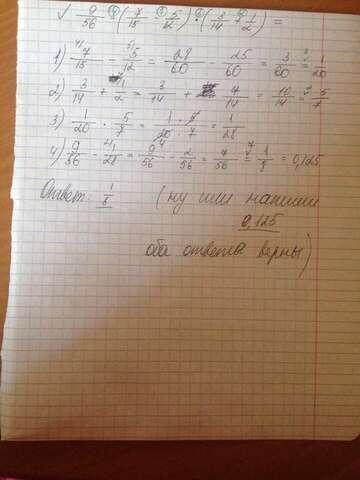 √ 9/56 - (7/15 - 5/12) · (3/14 + 1/2) =
1) 7/15 - 5/12 = 28/60 - 25/60 = 3/60 = 1/20
2) 3/14 + 1/2 = 3/14 + 7/14 = 10/14 = 5/7
3) 1/20 · 5/7 = 1·1/20·7 = 1/28
4) 9/56 - 1/28 = 9/56 - 2/56 = 7/56 = 1/8 = 0,125
Ответ: 1/8 (ну или напиши
0,125
оба ответа верны)